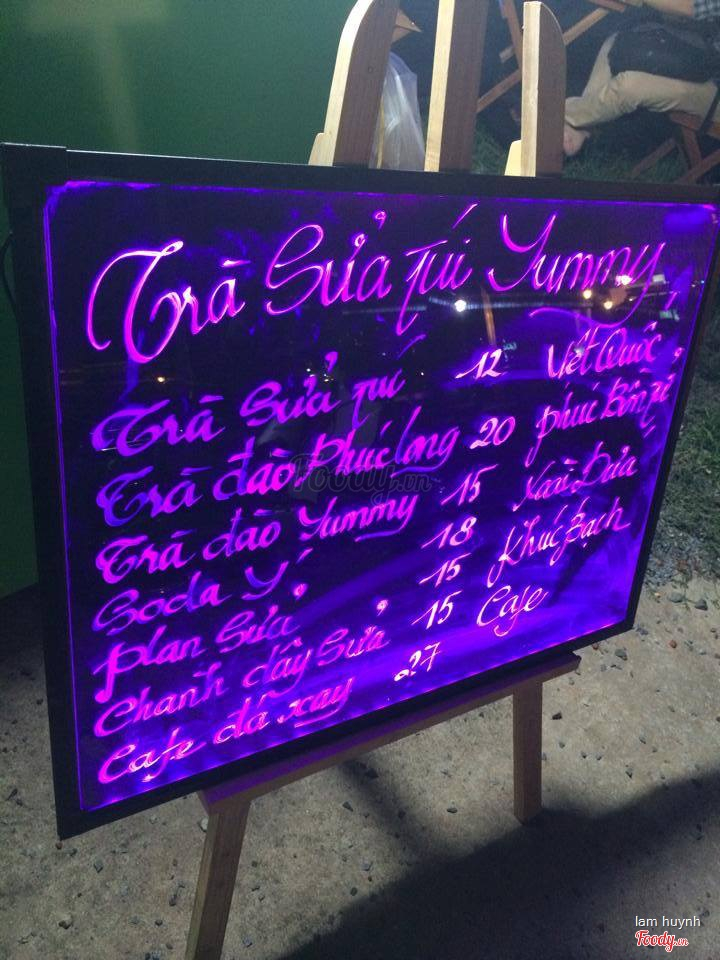 Trà Sửa túi Yummy
Trà Sửa túi 12 Việt Quốc
Trà đào Phúc Long 20 phúc Bồn
Trà đào Yummy 15 Xoài Dừa
Soda Ý 18 Khúc Bạch
plan Sửa 15 Cafe
Chanh dây Sửa 15
Cafe đá xay 27
Foody.vn
lam huynh
Foody.vn